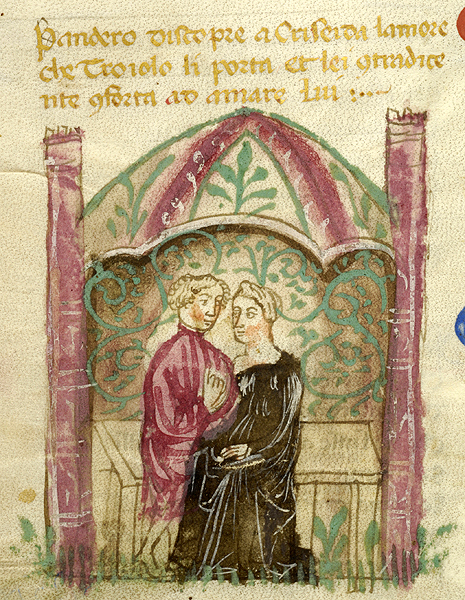 Pandero discopre a Criseida lamore
che Troiolo li porta et lei ꝯtradice
nte ꝯforta ad amare lui :